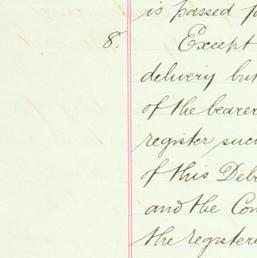 is passed
8. Except
delivery but
of the bearer
register such
of this Deb
and the Com
the registere